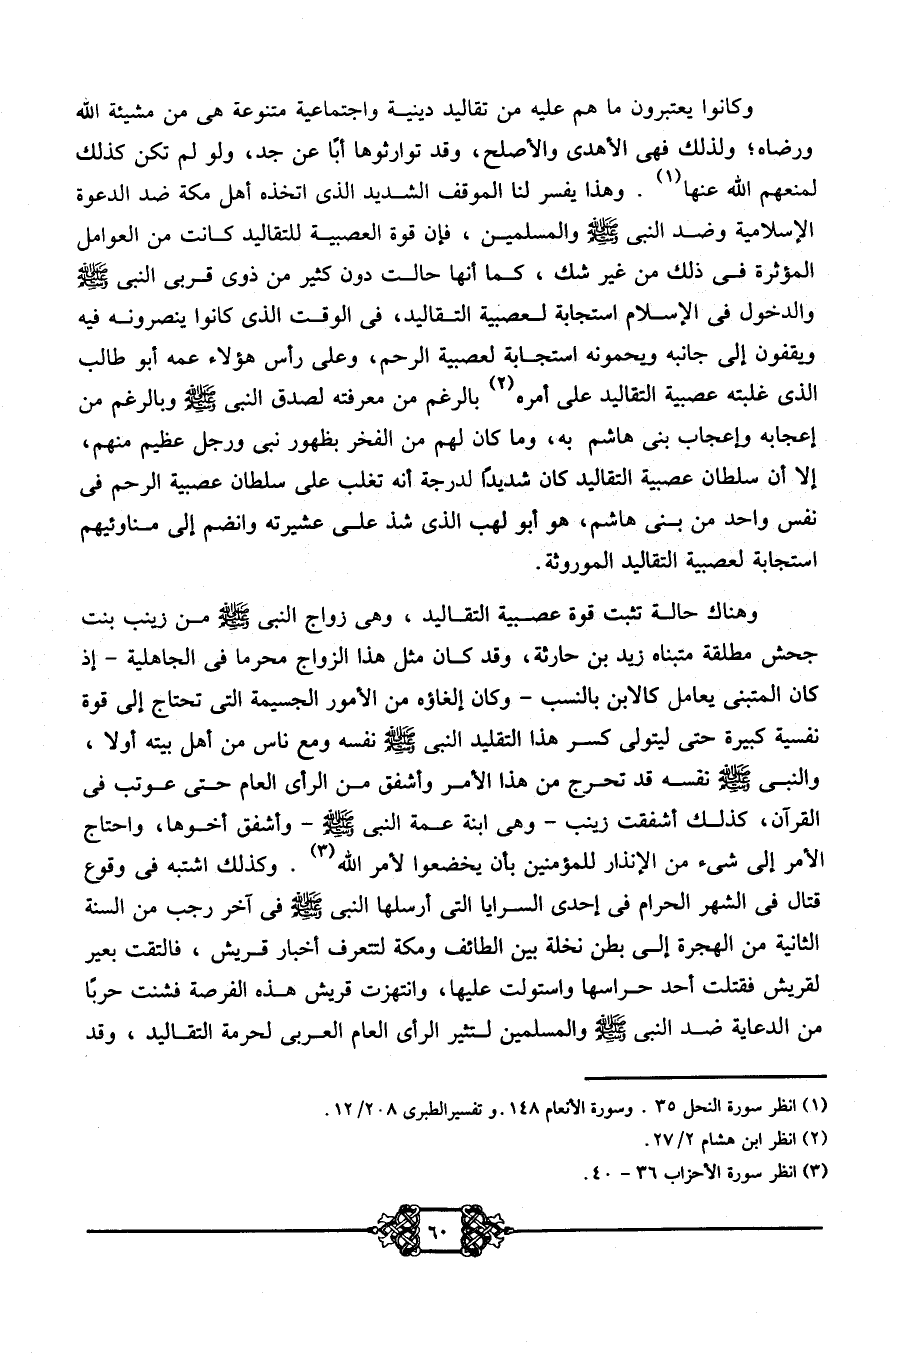 وكانوا يعتبرون ما هم عليه من تقاليد دينية واجتماعية متنوعة هى من مشيئة الله
ورضاه؛ ولذلك فهى الأهدى والأصلح، وقد توارثوها أبًا عن جد، ولو لم تكن كذلك
لمنعهم الله عنها(١) . وهذا يفسر لنا الموقف الشديد الذى اتخذه أهل مكة ضد الدعوة
الإسلامية وضد النبى ﷺ والمسلمين ، فإن قوة العصبية للتقاليد كانت من العوامل
المؤثرة فى ذلك من غير شك ، كما أنها حالت دون كثير من ذوى قربى النبى ﷺ
والدخول فى الإسلام استجابة لعصبية التقاليد، فى الوقت الذى كانوا ينصرونه فيه
ويقفون إلى جانبه ويحمونه استجابة لعصبية الرحم، وعلى رأس هؤلاء عمه أبو طالب
الذى غلبته عصبية التقاليد على أمره(٢) بالرغم من معرفته لصدق النبى ﷺ وبالرغم من
إعجابه وإعجاب بنى هاشم به، وما كان لهم من الفخر بظهور نبى ورجل عظيم منهم،
إلا أن سلطان عصبية التقاليد كان شديدًا لدرجة أنه تغلب على سلطان عصبية الرحم فى
نفس واحد من بنى هاشم، هو أبو لهب الذى شذ على عشيرته وانضم إلى مناوئيهم
استجابة لعصبية التقاليد الموروثة.
وهناك حالة تثبت قوة عصبية التقاليد ، وهى زواج النبى ﷺ من زينب بنت
جحش مطلقة متبناه زيد بن حارثة، وقد كان مثل هذا الزواج محرما فى الجاهلية - إذ
كان المتبنى يعامل كالابن بالنسب - وكان إلغاؤه من الأمور الجسيمة التى تحتاج إلى قوة
نفسية كبيرة حتى ليتولى كسر هذا التقليد النبى ﷺ نفسه ومع ناس من أهل بيته أولا ،
والنبى ﷺ نفسه قد تحرج من هذا الأمر وأشفق من الرأى العام حتى عوتب فى
القرآن، كذلك أشفقت زينب - وهى ابنة عمة النبى ﷺ - وأشفق أخوها، واحتاج
الأمر إلى شىء من الإنذار للمؤمنين بأن يخضعوا لأمر الله(٣) . وكذلك اشتبه فى وقوع
قتال فى الشهر الحرام فى إحدى السرايا التى أرسلها النبى ﷺ فى آخر رجب من السنة
الثانية من الهجرة إلى بطن نخلة بين الطائف ومكة لتتعرف أخبار قريش ، فالتقت بعير
لقريش فقتلت أحد حراسها واستولت عليها، وانتهزت قريش هذه الفرصة فشنت حربًا
من الدعاية ضد النبى ﷺ والمسلمين لتثير الرأى العام العربى لحرمة التقاليد ، وقد
(١) انظر سورة النحل ٣٥ . وسورة الأنعام ١٤٨.و تفسيرالطبرى ١٢/٢٠٨ .
(٢) انظر ابن هشام ٢٧/٢ .
(٣) انظر سورة الأحزاب ٣٦ - ٤٠ .
٦٠